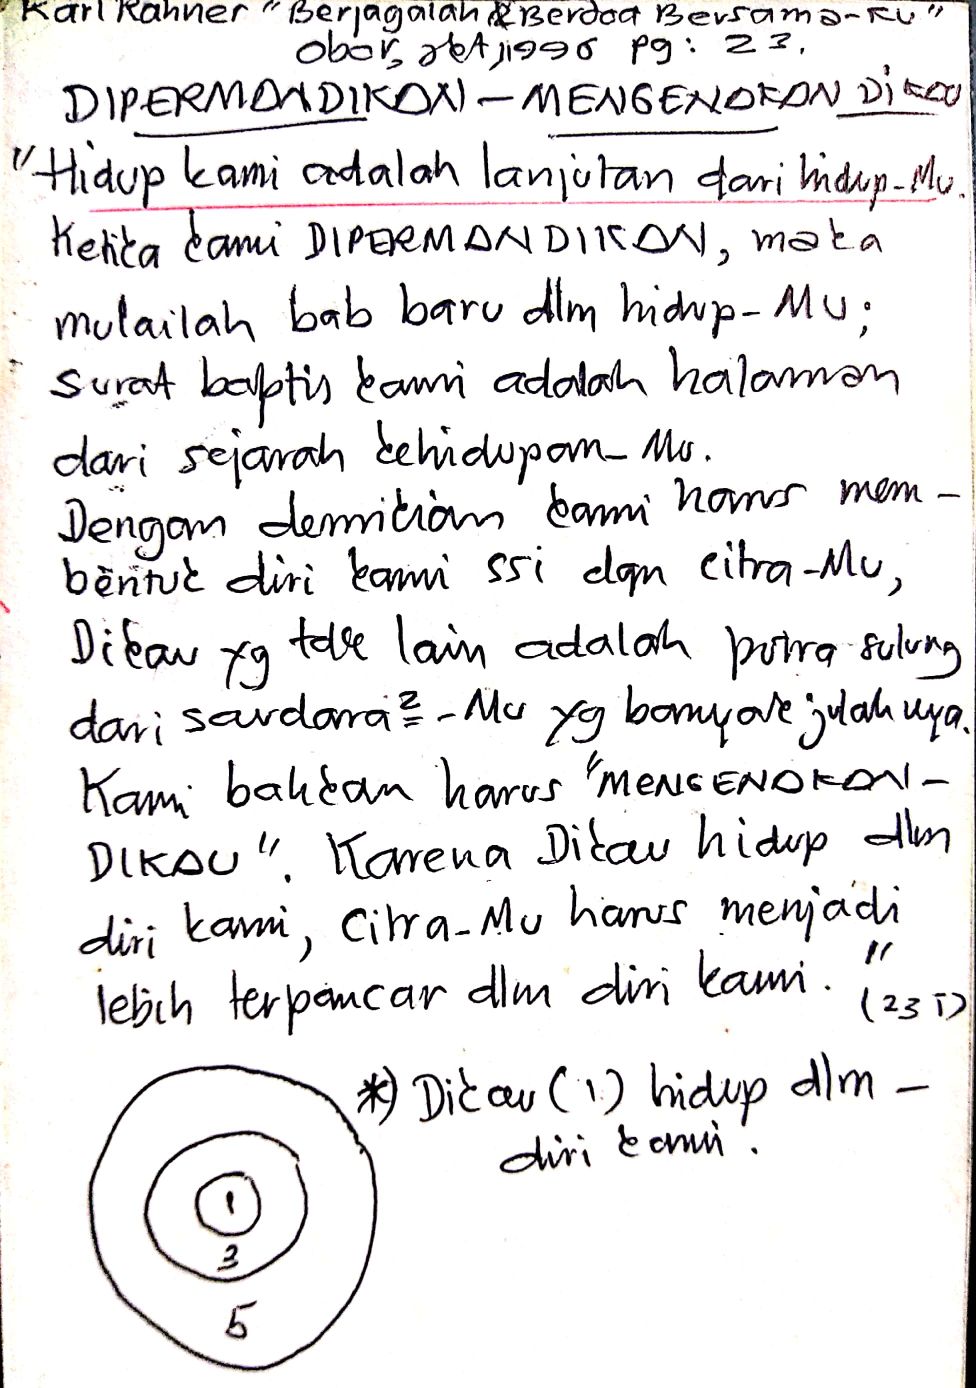 Karl Rahner "Berjagalah & Berdoa Bersama-Ku"
Obor, JKt, 1996 pg: 23.
DIPERMANDIKAN – MENGENAKAN DiKAU
"Hidup kami adalah lanjutan dari hidup-Mu.
Ketika kami DIPERMANDIKAN, maka
mulailah bab baru dlm hidup-Mu;
surat baptis kami adalah halaman
dari sejarah kehidupan-Mu.
Dengan demikian kami harus mem-
bentuk diri kami ssi dgn citra-Mu,
Dikau yg tdk lain adalah putra sulung
dari saudara²-Mu yg banyak jmlahnya.
Kami bahkan harus "MENGENAKAN-
DIKAU". Karena Dikau hidup dlm
diri kami, Citra-Mu harus menjadi
lebih terpancar dlm diri kami."
(23 i)
*) Dikau (1) hidup dlm –
diri kami.
1
3
5